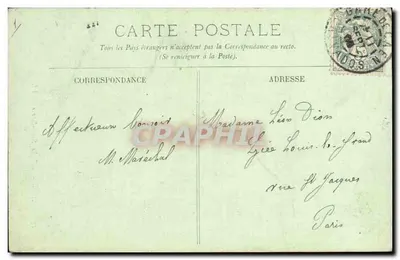 CARTE POSTALE
Tous les Pays étrangers n'acceptent pas la Correspondance au recto.
(Se renseigner à la Poste).
CORRESPONDANCE
ADRESSE
Affectueux
M. Maréchal
Madame Léon Dion
Lycée Louis-le-Grand
rue St Jacques
Paris
CPAPHIL